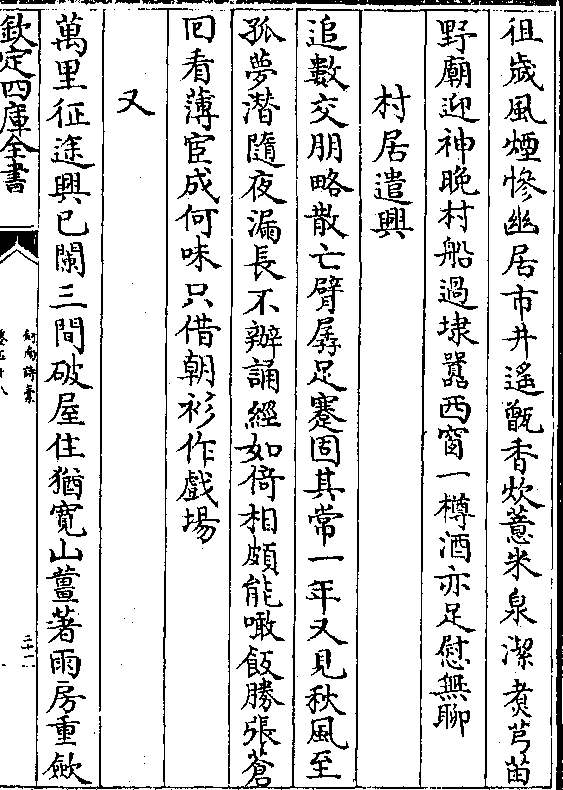 徂歲風煙慘幽居市井遙甑香炊薏米泉潔煑芎苗
野廟迎神晩村船過埭囂西窗一樽酒亦足慰無聊
村居遣興
追數交朋略散亡臂孱足蹇固其常一年又見秋風至
孤夢潛隨夜漏長不辦誦經如倚相頗能噉飯勝張蒼
囘看薄宦成何味只借朝衫作戲場
又
萬里征途興已闌三間破屋住猶寛山薑著雨房重斂
欽定四庫全書
劍南詩藁
卷五十八
三十一